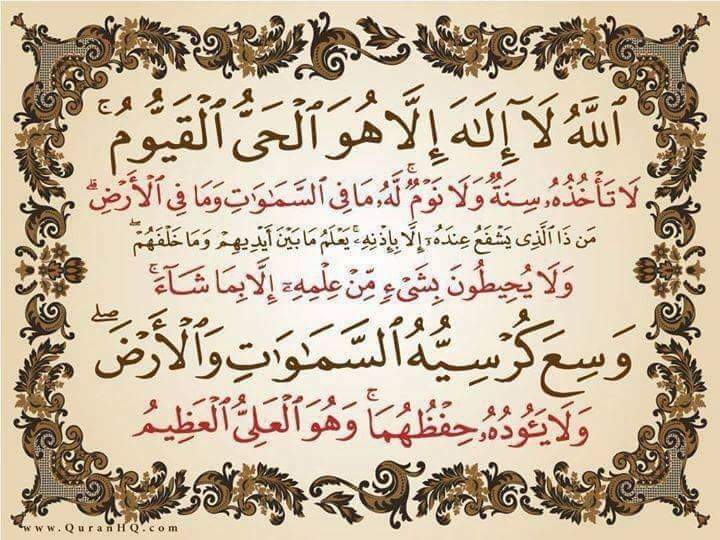 ٱللَّهُ لَآ إِلَٰهَ إِلَّا هُوَ ٱلْحَىُّ ٱلْقَيُّومُ ۚ
لَا تَأْخُذُهُۥ سِنَةٌ وَلَا نَوْمٌ ۚ لَّهُۥ مَا فِى ٱلسَّمَٰوَٰتِ وَمَا فِى ٱلْأَرْضِ ۗ
مَن ذَا ٱلَّذِى يَشْفَعُ عِندَهُۥٓ إِلَّا بِإِذْنِهِۦ ۚ يَعْلَمُ مَا بَيْنَ أَيْدِيهِمْ وَمَا خَلْفَهُمْ ۖ
وَلَا يُحِيطُونَ بِشَىْءٍ مِّنْ عِلْمِهِۦٓ إِلَّا بِمَا شَآءَ ۚ
وَسِعَ كُرْسِيُّهُ ٱلسَّمَٰوَٰتِ وَٱلْأَرْضَ ۖ
وَلَا يَـُٔودُهُۥ حِفْظُهُمَا ۚ وَهُوَ ٱلْعَلِىُّ ٱلْعَظِيمُ
www.QuranHQ.com